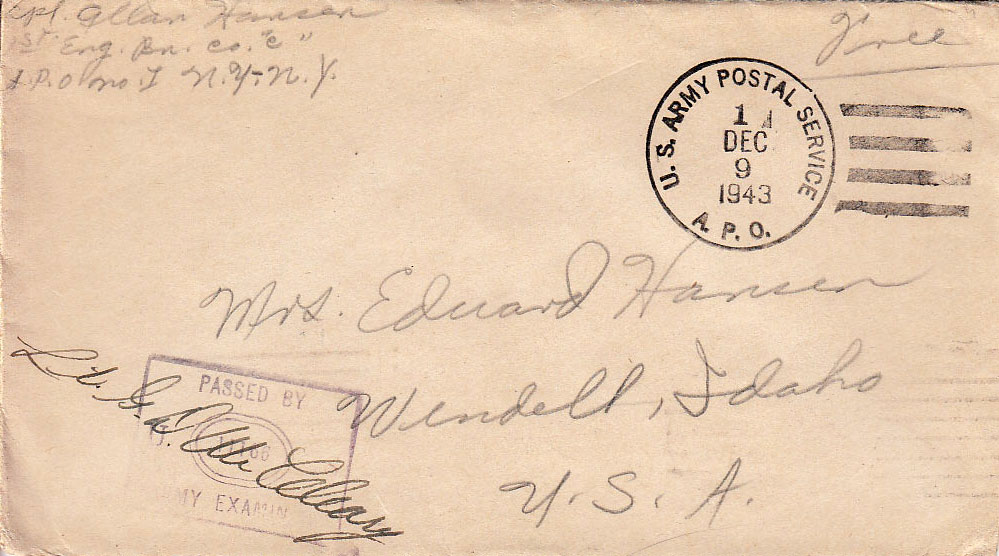 Cpl. Allan Hansen
1st Eng. Bn. Co. "C"
A.P.O no. 1 N.Y.-N.Y.
Free
U. S. ARMY POSTAL SERVICE
1
DEC
9
1943
A. P. O.
Mrs. Eduard Hansen
Wendell, Idaho
U. S. A.
PASSED BY
ARMY EXAMIN
Lt.